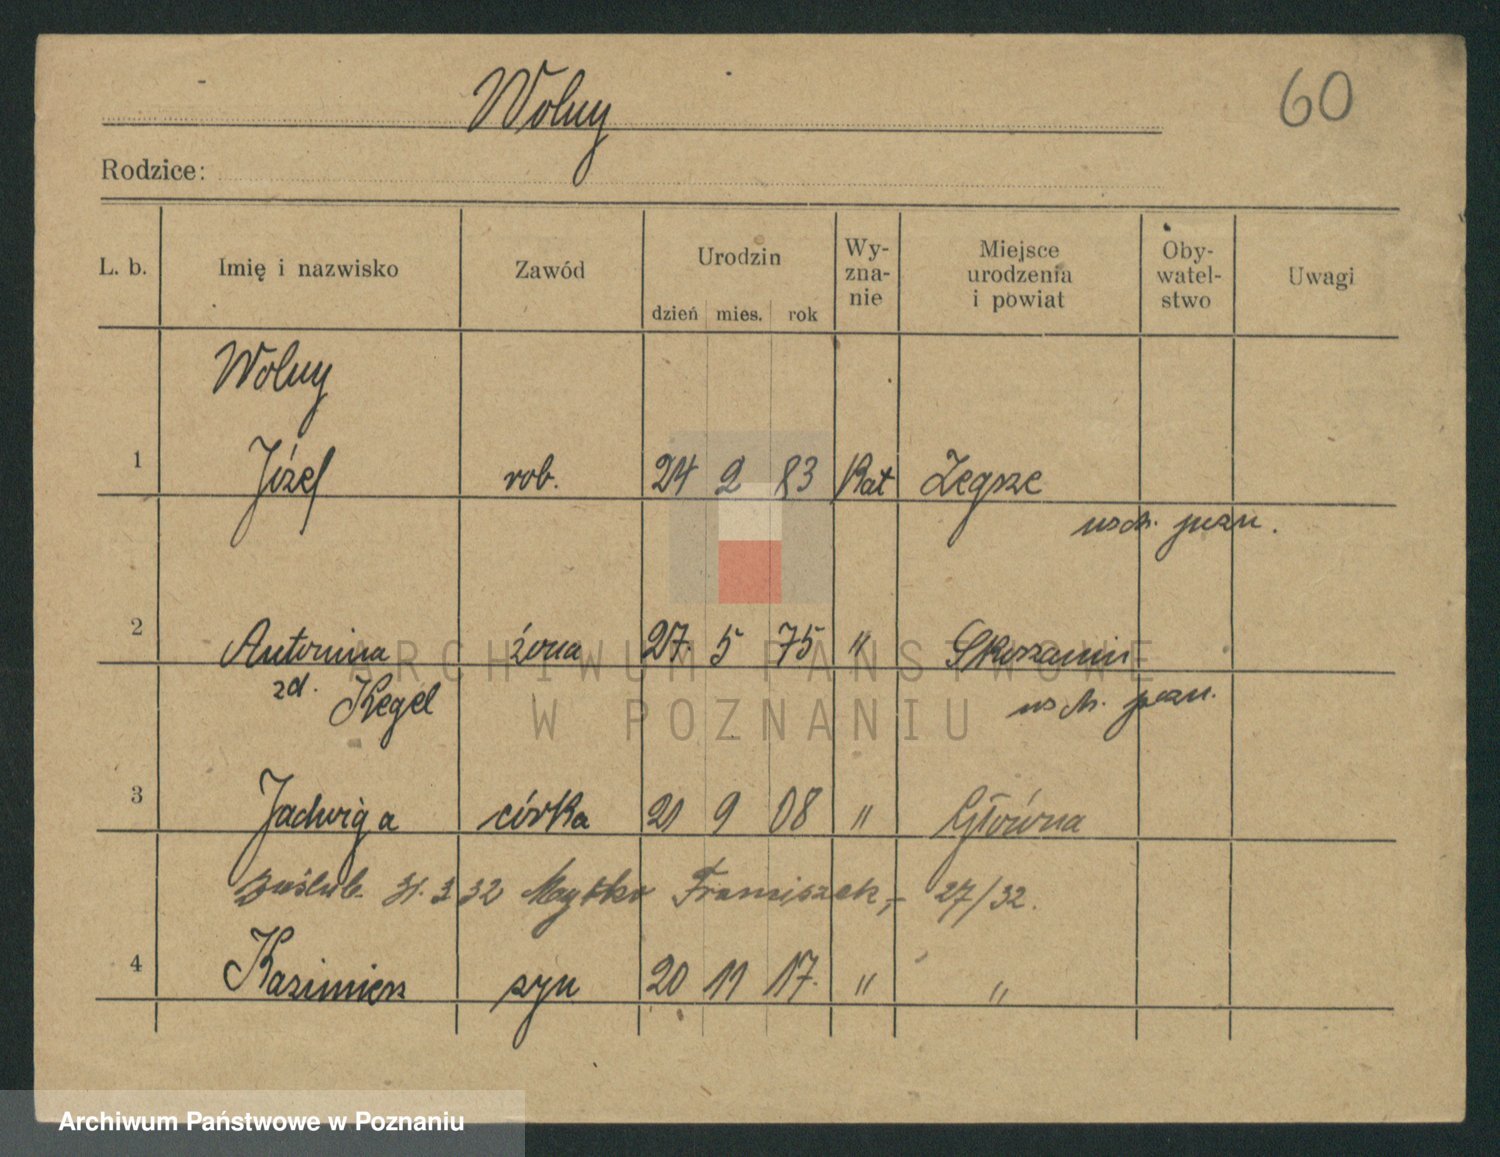 60
Wolny
Rodzice:
L. b. Imię i nazwisko Zawód Urodzin dzień mies. rok Wy-zna-nie Miejsce urodzenia i powiat Oby-watel-stwo Uwagi
Wolny
1 Józef rob. 24 2 83 Kat Zegrze
wsch. pozn.
2 Antonina żona 27. 5 75 "
zd. Kegel wsch. pozn.
3 Jadwiga córka 21 9 08 " Główna
zaślub. 31. 3 32 Franciszek, - 27/32.
4 Kazimierz syn 20 11 17. " "
ARCHIWUM PAŃSTWOWE
W POZNANIU
Archiwum Państwowe w Poznaniu